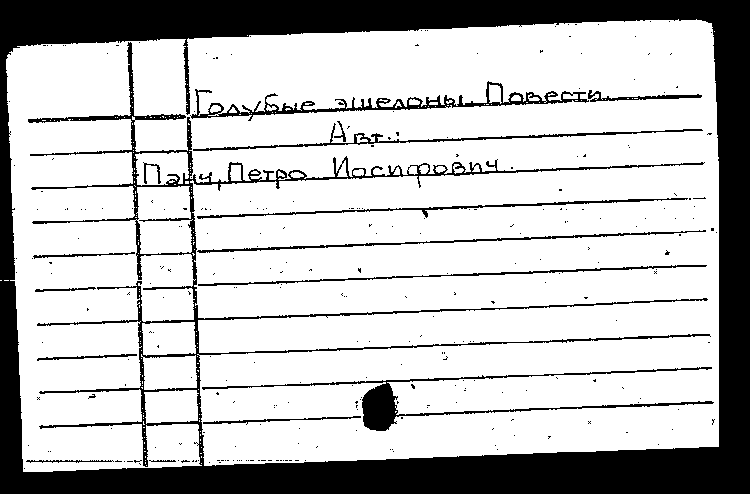 Голубые эшелоны. Повести.
Авт.:
Панч, Петро Иосифович.